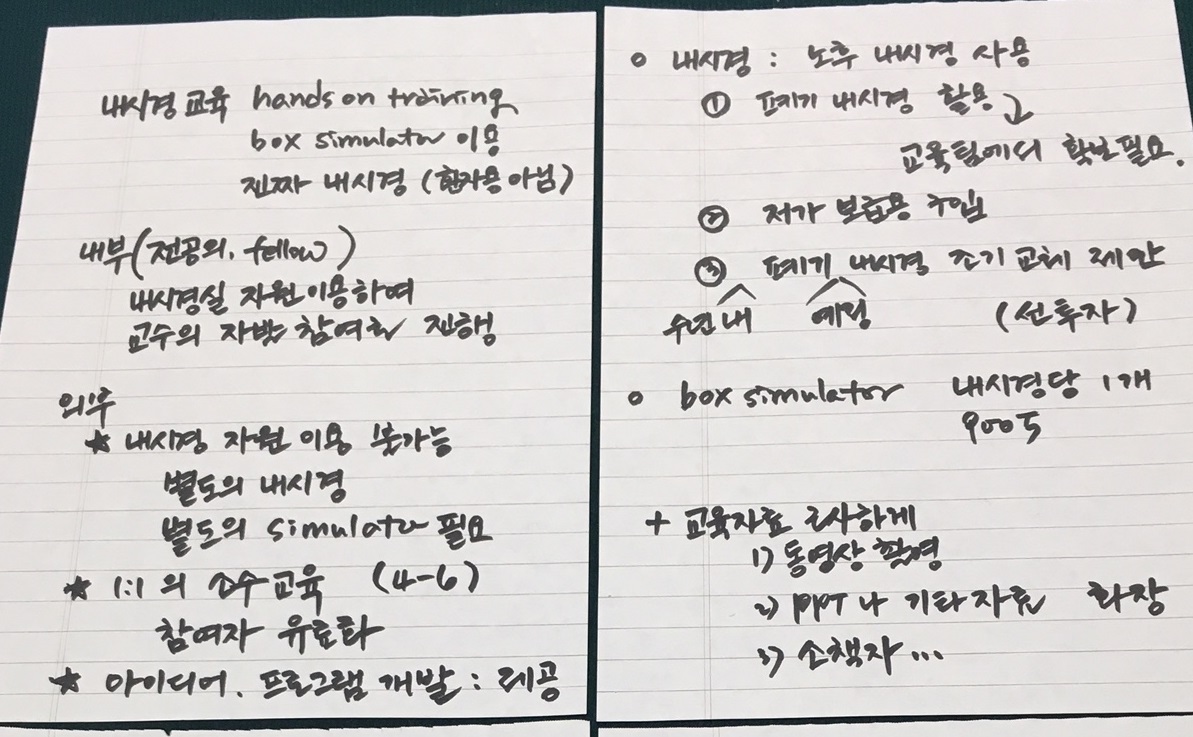 내시경 교육 hands on training
box simulator 이용
진짜 내시경 (환자용 아님)
내부 (전공의, fellow)
내시경실 자원 이용하여
교수의 자발 참여로 진행
외부
★ 내시경 자원 이용 불가능
별도의 내시경
별도의 simulator 필요
★ 1:1의 소수교육 (4-6)
참여자 유료화
★ 아이디어, 프로그램 개발 : 제공
○ 내시경 : 노후 내시경 사용
① 폐기 내시경 활용
교육팀에서 확보 필요.
② 저가 보급용 구입
③ 폐기 내시경 조기 교체 제안
수년내 예정 (선투자)
○ box simulator 내시경당 1개
+ 교육자료 근사하게
1) 동영상 촬영
2) ppt 나 기타자료 화장
3) 소책자 ...